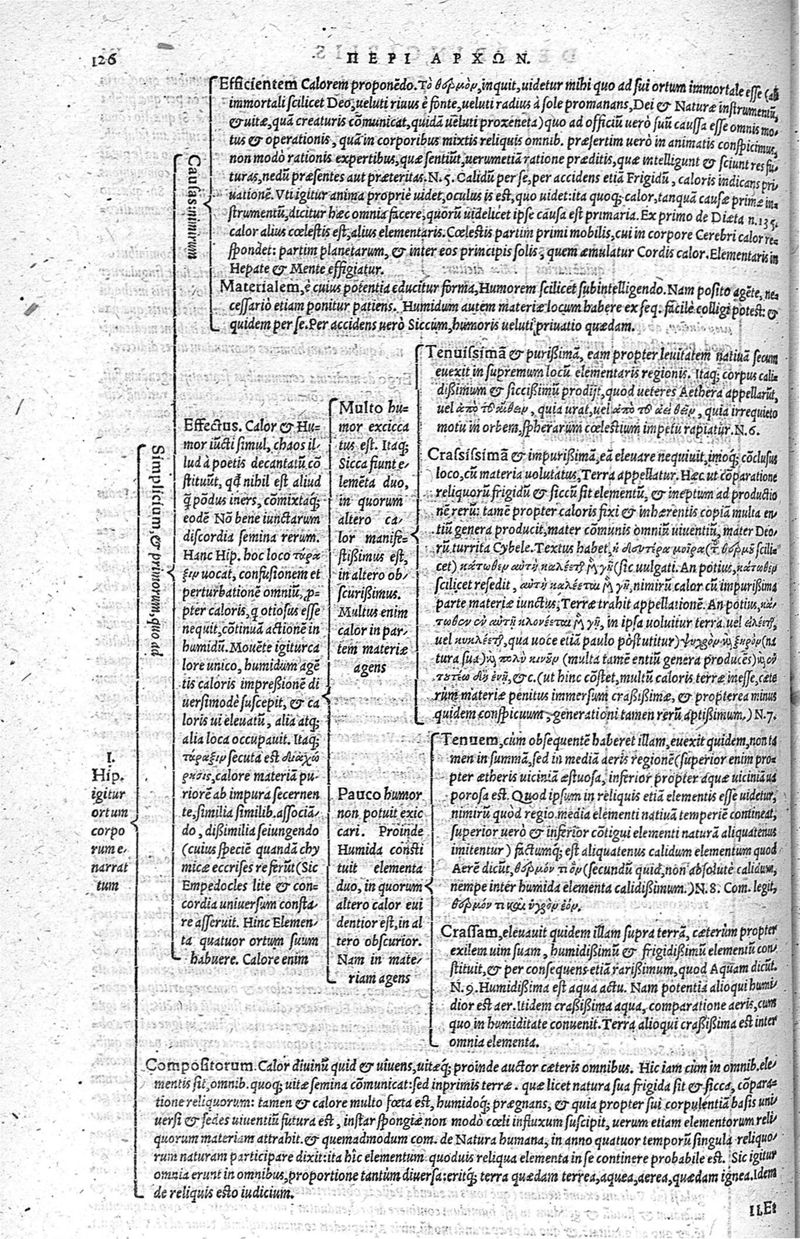 126
ΠΕΡΙ ΑΡΧΩΝ.
Efficientem Calorem proponẽdo. Τὸ θερμὸν, inquit, uidetur mihi quo ad sui ortum immortale esse (ab
immortali scilicet Deo, ueluti riuus è fonte, ueluti radius à sole promanans, Dei & Naturæ instrumentũ,
& uitæ, quã creaturis cõmunicat, quidã ueluti proxeneta) quo ad officiũ uerò suũ caussa esse omnis mo-
tus & operationis, quã in corporibus mixtis reliquis omnib. præsertim uerò in animatis conspicimus,
non modò rationis expertibus, quæ sentiũt, uerumetiã ratione præditis, quæ intelligunt & sciunt res fu-
turas, nedũ præsentes aut præteritas. N. 5. Calidũ per se, per accidens etiã Frigidũ, caloris indicans pri-
uationẽ. Vti igitur anima propriè uidet, oculus is est, quo uidet: ita quoq; calor, tanquã causæ primæ in-
strumentũ, dicitur hæc omnia facere, quorũ uidelicet ipse causa est primaria. Ex primo de Diæta n. 135.
calor alius cœlestis est, alius elementaris. Cœlestis partim primi mobilis, cui in corpore Cerebri calor re-
spondet: partim planetarum, & inter eos principis solis, quem æmulatur Cordis calor. Elementaris in
Hepate & Mente effigiatur.
Materialem, è cuius potentia educitur forma, Humorem scilicet subintelligendo. Nam posito agẽte, ne-
cessariò etiam ponitur patiens. Humidum autem materiæ locum habere ex seq. facilè colligi potest: &
quidem per se. Per accidens uerò Siccum, humoris ueluti priuatio quædam.
Causas unimirum
Simplicium, & primorum, quo ad
I.
Hip.
igitur
ortum
corpo
rum e-
narrat
tum
Effectus. Calor & Hu-
mor iũcti simul, chaos il-
lud à poetis decantatũ cõ
stituũt, qđ nihil est aliud
q̃ põdus iners, cõmixtaq;
eodẽ Nõ bene iunctarum
discordia semina rerum.
Hanc Hip. hoc loco τάρα-
ξιν uocat, confusionem et
perturbationẽ omniũ, ꝓ-
pter caloris, q̃ otiosus esse
nequit, cõtinuã actionẽ in
humidũ. Mouẽte igitur ca
lore unico, humidum agẽ
tis caloris impreßionẽ di
uersimodè suscepit, & ca
loris ui eleuatũ, alia atq;
alia loca occupauit. Itaq;
τάραξιν secuta est διαχώ
ρησις, calore materiã pu-
riorẽ ab impura secernen
te, similia similib. associã-
do, dißimilia seiungendo
(cuius speciẽ quandã chy
micæ eccrises referũt) Sic
Empedocles lite & con-
cordia uniuersum consta-
re asseruit. Hinc Elemen-
ta quatuor ortum suum
habuere. Calore enim
Multo hu-
mor exicca
tus est. Itaq;
Sicca fiunt e-
lemẽta duo,
in quorum
altero ca-
lor manife-
stißimus est,
in altero ob-
scurißimus.
Multus enim
calor in par-
tem materiæ
agens
Pauco humor
non potuit exic
cari. Proinde
Humida consti
tuit elementa
duo, in quorum
altero calor eui
dentior est, in al
tero obscurior.
Nam in mate-
riam agens
Tenuissimã & purißimã, eam propter leuitatem natiuã secum
euexit in supremum locũ elementaris regionis. Itaq; corpus cali-
dißimum & siccißimũ prodijt, quod ueteres Aethera appellarũt,
uel ἀπὸ τοῦ αἴθειν, quia urat, uel ἀπὸ τοῦ ἀεὶ θεῖν, quia irrequieto
motu in orbem, spherarum cœlestium impetu rapiatur. N. 6.
Crassissimã & impurißimã, eã eleuare nequiuit, imoq; cõclusus
loco, cũ materia uolutatus, Terra appellatur. Hæc ut cõparatione
reliquorũ frigidũ & siccũ sit elementũ, & ineptum ad productio
nẽ rerũ: tamẽ propter caloris fixi & inhærentis copiã multa en-
tiũ genera producit, mater cõmunis omniũ uiuentiũ, mater Deo-
rũ turrita Cybele. Textus habet, ἡ δευτέρα μοῖρα (τ θερμοῦ scili-
cet) κάτωθεν αὕτη καλέεται ἡ γῆ, (sic uulgati. An potius, κάτωθεν
scilicet resedit, αὕτη καλέεται ἡ γῆ, nimirũ calor cũ impurißima
parte materiæ iunctus, Terræ trahit appellationẽ. An potius, κά-
τωθεν οὖν αὐτῇ κλονέεται ἡ γῆ, in ipsa uoluitur terra uel
uel κυκλέεται, qua uoce etiã paulo pòst utitur) ψυχρὸν κὶ ξηρὸν (na
tura sua) κὶ πολὺ κινοῦν (multa tamẽ entiũ genera producẽs) κὶ ἐν
τουτέῳ δὴ ἔνι, & c. (ut hinc cõstet, multũ caloris terræ inesse, cæte
rùm materiæ penitus immersum craßißimæ, & propterea minus
quidem conspicuum, generationi tamen rerũ aptißimum.) N. 7.
Tenuem, cùm obsequentẽ haberet illam, euexit quidem, non ta
men in summã, sed in mediã aeris regionẽ (superior enim pro-
pter ætheris uiciniã æstuosa, inferior propter aquæ uiciniã ua
porosa est. Quod ipsum in reliquis etiã elementis esse uidetur,
nimirũ quod regio media elementi natiuã temperiẽ contineat,
superior uerò & inferior cõtigui elementi naturã aliquatenus
imitentur) factumq; est aliquatenus calidum elementum quod
Aerẽ dicũt, θερμόν τι ὂν (secundũ quid, non absolutè calidum,
nempe inter humida elementa calidißimum.) N. 8. Com. legit,
θερμόν τι καὶ ὑγρὸν ἐόν.
Crassam, eleuauit quidem illam supra terrã, cæterùm propter
exilem uim suam, humidißimũ & frigidißimũ elementũ con-
stituit, & per consequens etiã rarißimum, quod Aquam dicũt.
N. 9. Humidißima est aqua actu. Nam potentia alioqui humi
dior est aer. Itidem craßißima aqua, comparatione aeris, cum
quo in humiditate conuenit. Terra alioqui craßißima est inter
omnia elementa.
Compositorum. Calor diuinũ quid & uiuens, uitæq; proinde auctor cæteris omnibus. Hic iam cùm in omnib. ele-
mentis sit, omnib. quoq; uitæ semina cõmunicat: sed inprimis terræ. quæ licet natura sua frigida sit & sicca, cõpara-
tione reliquorum: tamen & calore multo fœta est, humidoq; prægnans, & quia propter sui corpulentiã basis uni-
uersi & sedes uiuentiũ futura est, instar spongiæ non modò cœli influxum suscipit, uerum etiam elementorum reli-
quorum materiam attrahit. & quemadmodum com. de Natura humana, in anno quatuor temporũ singula reliquo-
rum naturam participare dixit: ita hîc elementum quoduis reliqua elementa in se continere probabile est. Sic igitur
omnia erunt in omnibus, proportione tantùm diuersa: eritq; terra quædam terrea, aquea, aerea, quædam ignea. Idem
de reliquis esto iudicium.
ILEI